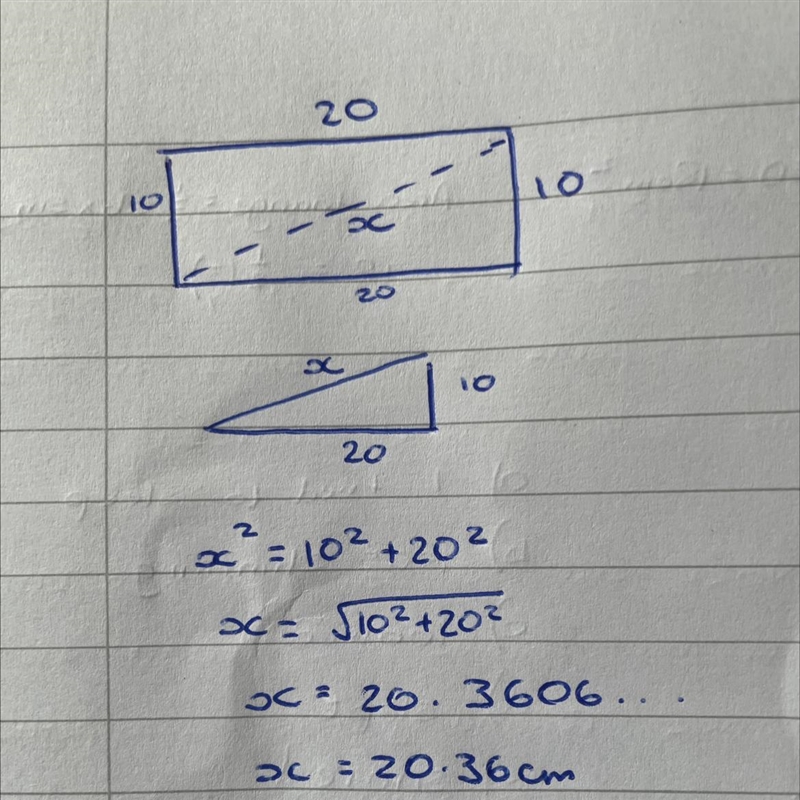 20
10 10
x
20
x
10
20
x² = 10² + 20²
x = √10²+20²
x = 20.3606...
x = 20.36cm